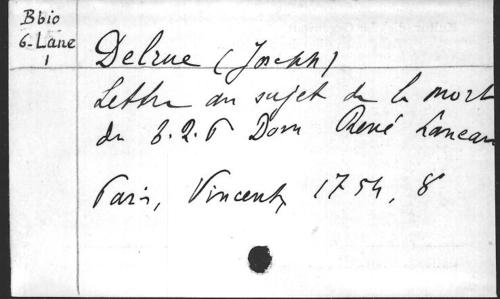 Bbio
6-Lane
1
Delrue (Joseph)
Lettre au sujet de la mort
du T. R. P Dom René Laneau
Paris, Vincent, 1754, 8